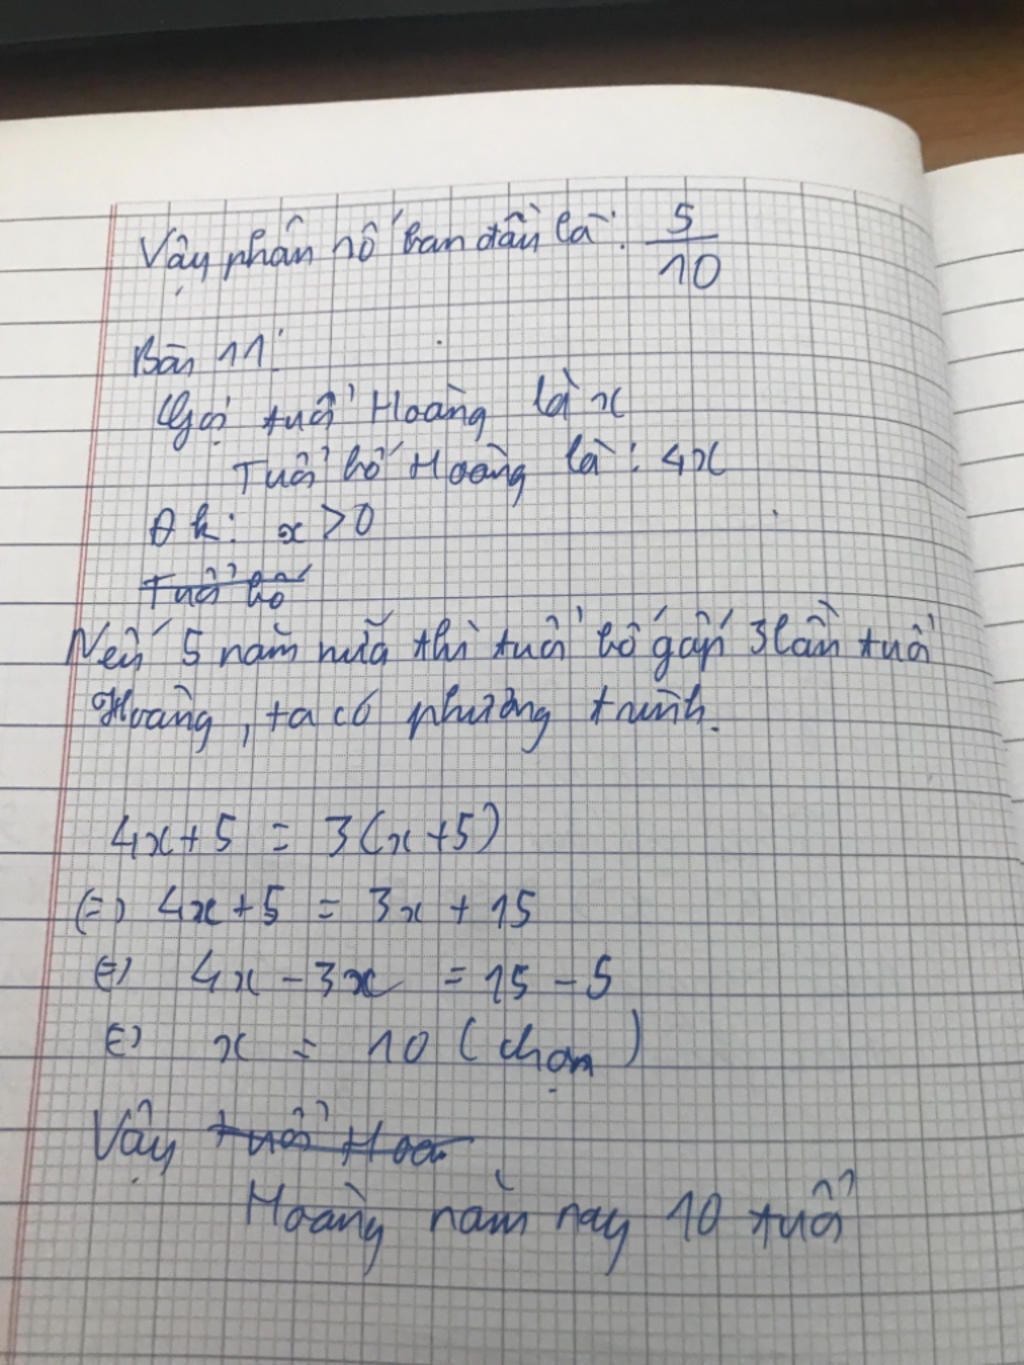 Vậy phân số ban đầu là: 5/10
Bài 11:
Gọi tuổi Hoàng là x
Tuổi bố Hoàng là: 4x
Đk: x > 0
Tuổi bố
Nếu 5 năm nữa thì tuổi bố gấp 3 lần tuổi
Hoàng, ta có phương trình.
4x + 5 = 3(x + 5)
(=) 4x + 5 = 3x + 15
(=) 4x - 3x = 15 - 5
(=) x = 10 (chọn)
Vậy tuổi Hoà
Hoàng năm nay 10 tuổi